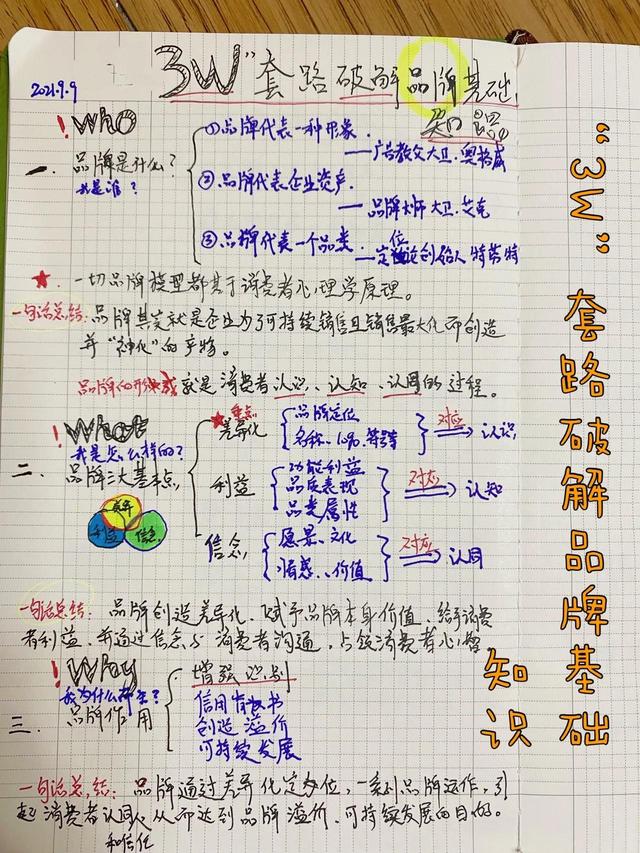 "3W"套路破解品牌基础
知识
2021.9.9
! Who
一、品牌是什么?
我是谁?
①品牌代表一种形象.
——广告教父大卫.奥格威
②品牌代表企业资产.
——品牌大师 大卫.艾克
③品牌代表一个品类.
——定位论创始人 特劳特
★ 一切品牌模型都基于消费者心理学原理。
一句话总结: 品牌其实就是企业为了可持续销售且销售最大化而创造
并"神化"的产物。
品牌的形成就是消费者认识、认知、认同的过程。
! What
我是怎么样的?
二、品牌三大基本点
差异
利益 信念
★重点
差异化 品牌定位 对应 认识
名称、logo.等等
利益 功能利益 对应 认知
品质表现
品类属性
信念 愿景、文化 对应 认同
情感、价值
一句话总结: 品牌创造差异化、赋予品牌本身价值、给予消费
者利益、并通过信念与消费者沟通,占领消费者心智。
! Why
我为什么存在?
三、品牌作用
增强识别
信用背书
创造溢价
可持续发展
一句话总结: 品牌通过差异化定位,一系列品牌运作,引
起消费者认同从而达到品牌溢价、可持续发展的目的。
和信任
"3W"套路破解品牌基础
知识